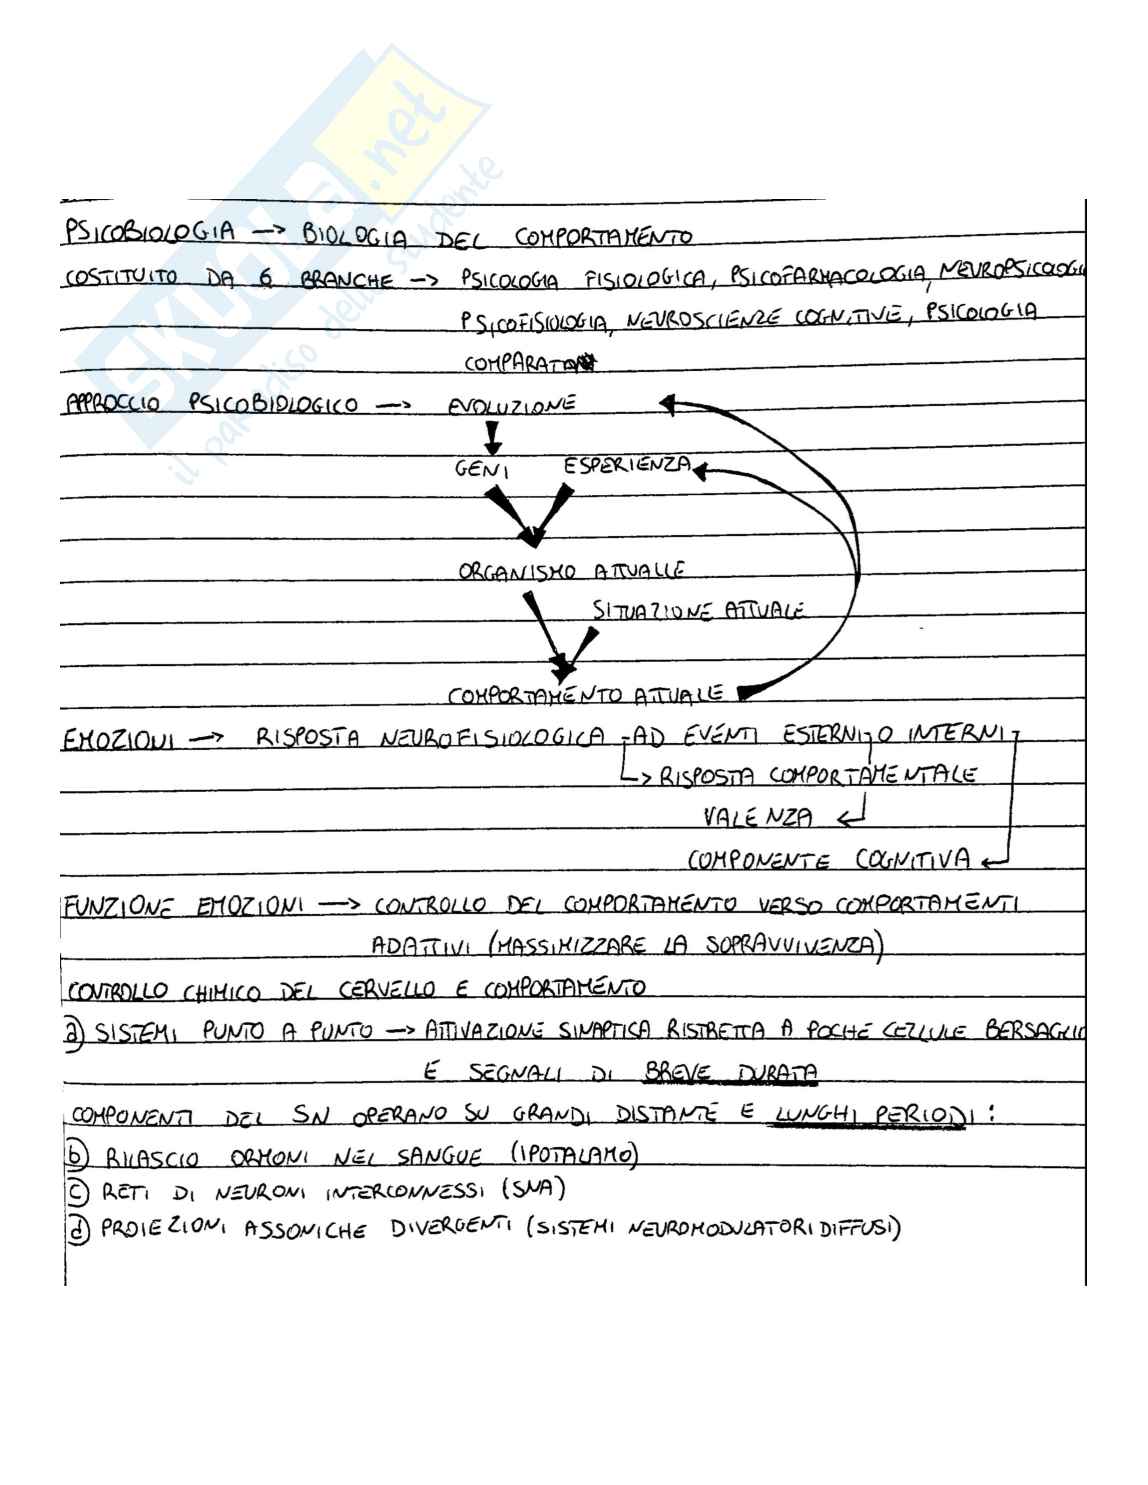 SKUOLA.net
il paradiso dello studente
PSICOBIOLOGIA -> BIOLOGIA DEL COMPORTAMENTO
COSTITUITO DA 6 BRANCHE -> PSICOLOGIA FISIOLOGICA, PSICOFARMACOLOGIA, NEUROPSICOLOGI
PSICOFISIOLOGIA, NEUROSCIENZE COGNITIVE, PSICOLOGIA
COMPARAT
APPROCCIO PSICOBIOLOGICO -> EVOLUZIONE
GENI ESPERIENZA
ORGANISMO ATTUALLE
SITUAZIONE ATTUALE
COMPORTAMENTO ATTUALE
EMOZIONI -> RISPOSTA NEUROFISIOLOGICA AD EVENTI ESTERNI O INTERNI
-> RISPOSTA COMPORTAMENTALE
VALENZA
COMPONENTE COGNITIVA
FUNZIONE EMOZIONI -> CONTROLLO DEL COMPORTAMENTO VERSO COMPORTAMENTI
ADATTIVI (MASSIMIZZARE LA SOPRAVVIVENZA)
CONTROLLO CHIMICO DEL CERVELLO E COMPORTAMENTO
a) SISTEMI PUNTO A PUNTO -> ATTIVAZIONE SINAPTICA RISTRETTA A POCHE CELLULE BERSAGLIO
E SEGNALI DI BREVE DURATA
COMPONENTI DEL SN OPERANO SU GRANDI DISTANTE E LUNGHI PERIODI:
b) RILASCIO ORMONI NEL SANGUE (IPOTALAMO)
c) RETI DI NEURONI INTERCONNESSI (SNA)
d) PROIEZIONI ASSONICHE DIVERGENTI (SISTEMI NEUROMODULATORI DIFFUSI)